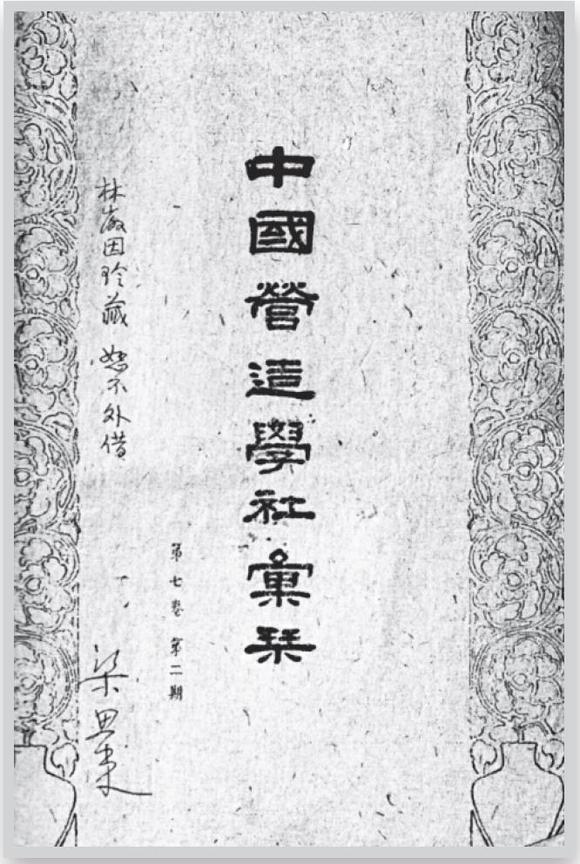 中國營造學社彙栞
第七卷 第二期
林徽因珍藏 恕不外借
梁思